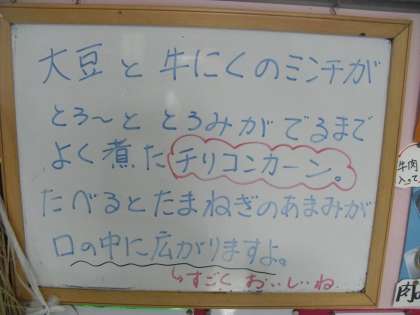 大豆と牛にくのミンチが
とろ〜ととろみがでるまで
よく煮たチリコンカーン。
たべるとたまねぎのあまみが
口の中に広がりますよ。
↳すごくおいしいね
牛肉
入って
肉